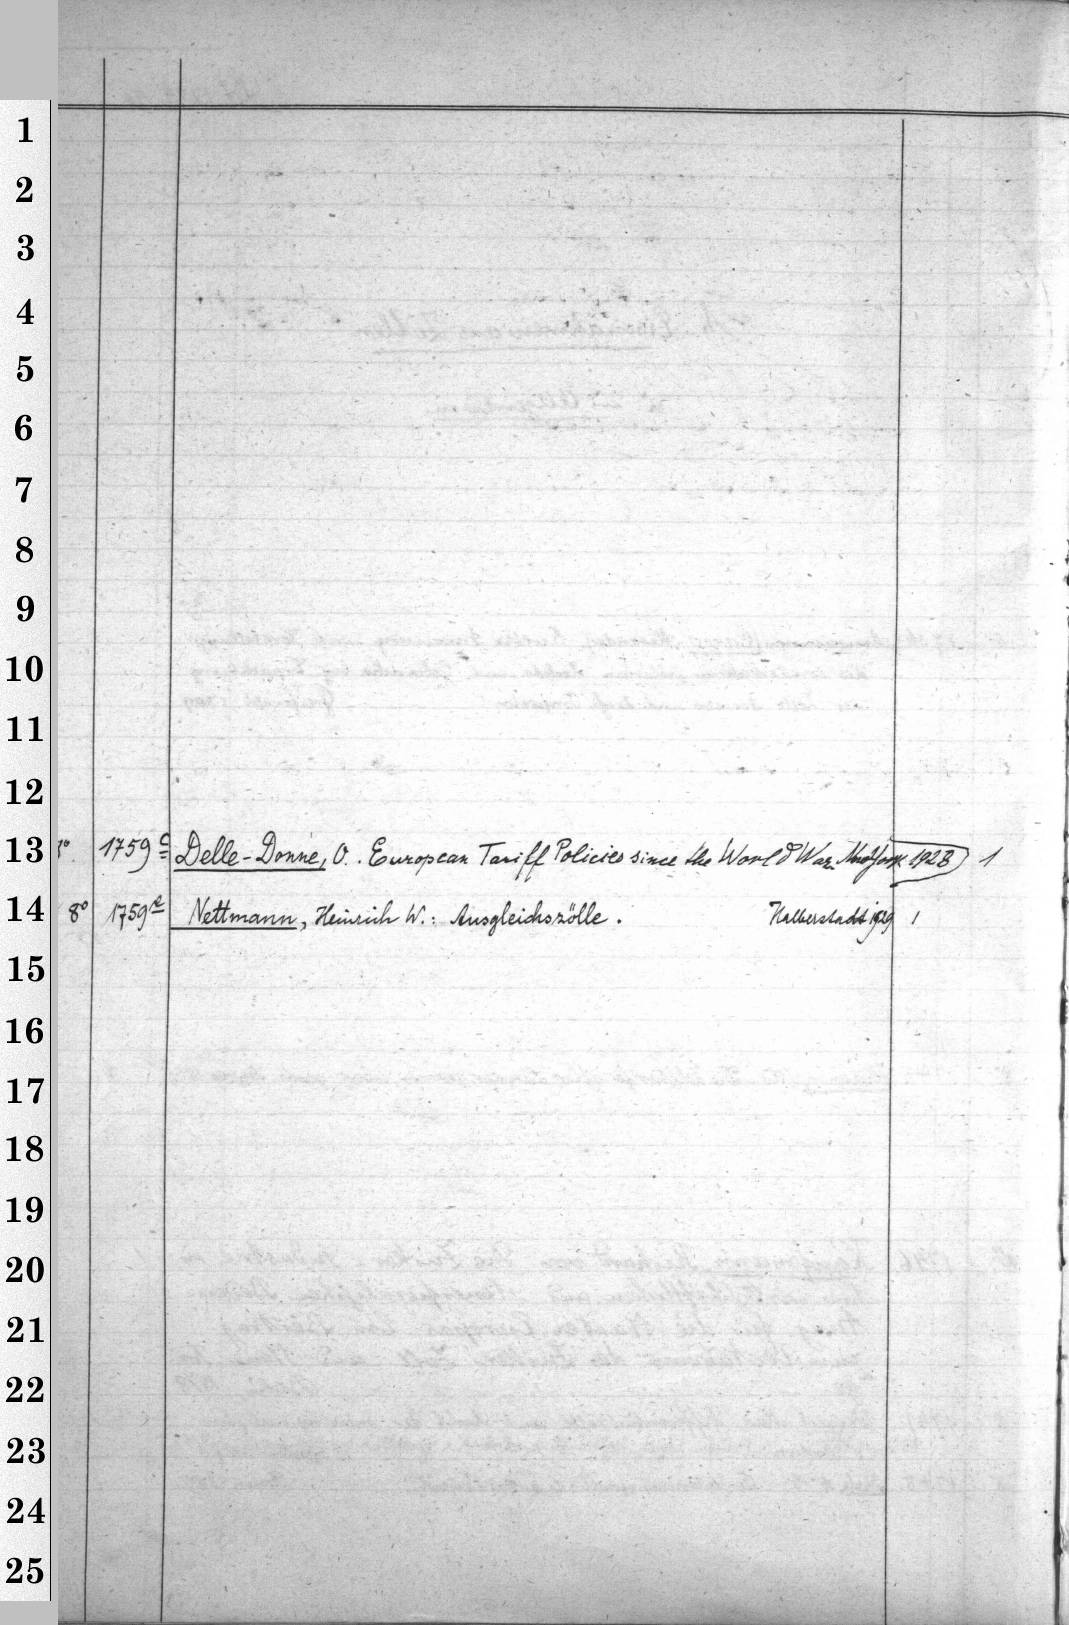 1
2
3
4
5
6
7
8
9
10
11
12
13 8° 1759c Delle-Donne, O. European Tariff Policies since the World War. New York 1928 1
14 8° 1759e Nettmann, Heinrich W.: Ausgleichszölle. Halberstadt 1929 1
15
16
17
18
19
20
21
22
23
24
25